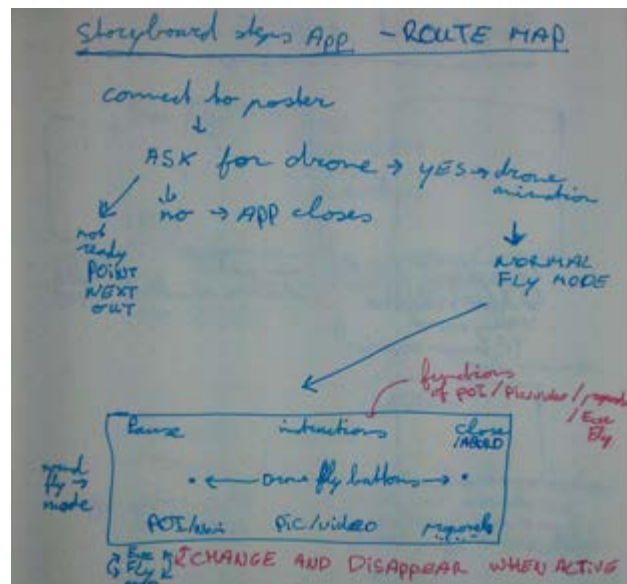 Storyboard steps App - ROUTE MAP
connect to poster
↓
ASK for drone → YES → drone
animation
↓
no → APP closes
not
ready
POINT
NEXT
OUT
NORMAL
FLY MODE
functions
of POI/Pic/video/
/Eye
Fly
Pause instructions close
/ABORD
fly →
mode
• ← Drone fly buttons → •
POI/Navi Pic/video
Eye
Fly
CHANGE AND DISAPPEAR WHEN ACTIVE